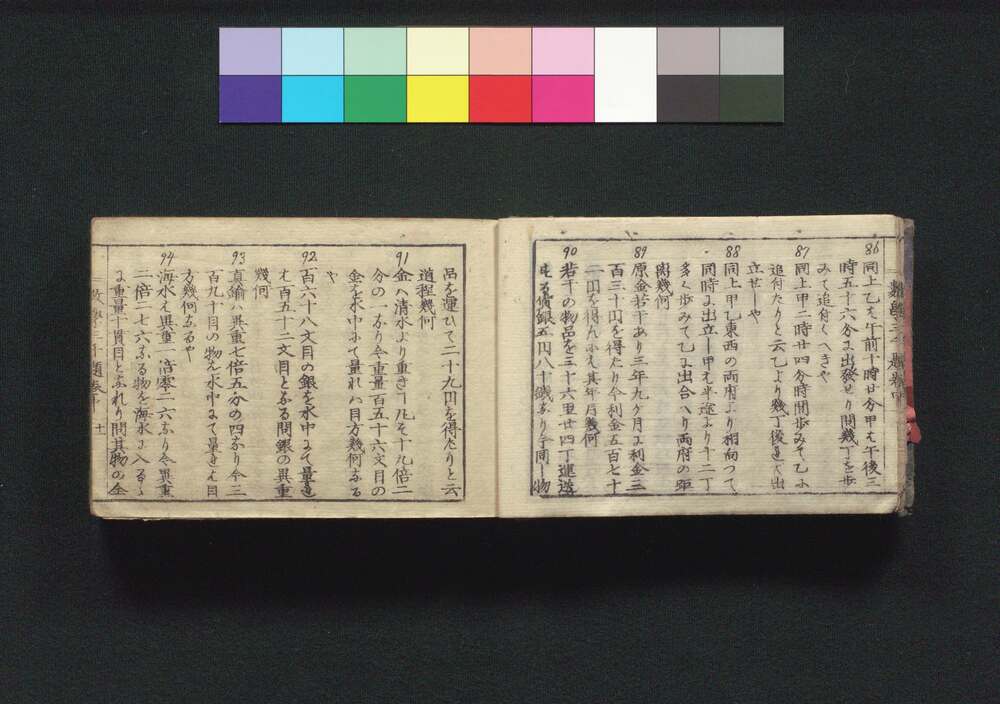 86 同上乙ハ午前十時廿分甲ハ午後三
時五十六分に出發せり問幾丁を歩
みて追付くへきや
87 同上甲二時廿四分時間歩みて乙に
追付たりと云乙より幾丁後连て出
立せしや
88 同上甲乙東西の両府より相向つて
同時に出立し甲ハ半途より十二丁
多く歩みて乙に出合へり両府の距
離幾何
89 原金若干あり三年九ケ月に利金三
百三十円を得たり今利金五百七十
二円を得んにハ其年月幾何
90 若干の物品を三十六里廿四丁運送
する賃銀五円八十錢なり今同し物
品を運ひて二十九円を得たりと云
道程幾何
91 金ハ清水より重きヿ凡そ十九倍二
分の一なり今重量百五十六文目の
金を水中にて量れハ目方幾何なる
や
92 百六十八文目の銀を水中にて量れ
ハ百五十二文目となる問銀の異重
幾何
93 真鍮ハ異重七倍五分の四なり今三
百九十目の物を水中にて量れハ目
方幾何なるや
94 海水ハ異重一倍零二六なり今異重
二倍二七六なる物を海水に入るゝ
に重量十貫目となれり問其物の全
十一